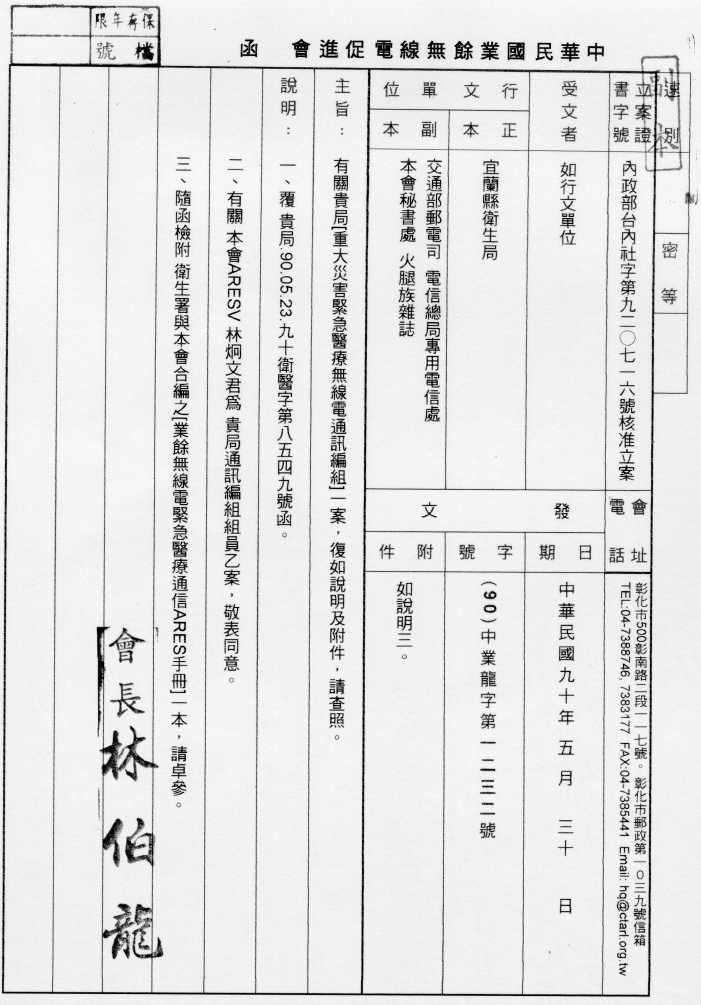 保存年限
檔號
中華民國業餘無線電促進會 函
副本
速別
密等
立案證書字號
內政部台內社字第九二〇七一六號核准立案
會址
電話
彰化市500彰南路二段一一七號。彰化市郵政第一0三九號信箱
TEL:04-7388746, 7383177 FAX:04-7385441 Email: hq@ctarl.org.tw
受文者
如行文單位
行文單位
正本
宜蘭縣衛生局
副本
交通部郵電司 電信總局專用電信處
本會秘書處 火腿族雜誌
發文
日期
中華民國九十年五月 三十 日
字號
(90)中業龍字第一二三二號
附件
如說明三。
主旨:有關貴局[重大災害緊急醫療無線電通訊編組]一案,復如說明及附件,請查照。
說明:一、覆 貴局.90.05.23.九十衛醫字第八五四九號函。
二、有關 本會ARESV 林炯文君爲 貴局通訊編組組員乙案,敬表同意。
三、隨函檢附 衛生署與本會合編之[業餘無線電緊急醫療通信ARES手冊]一本,請卓參。
會長林伯龍